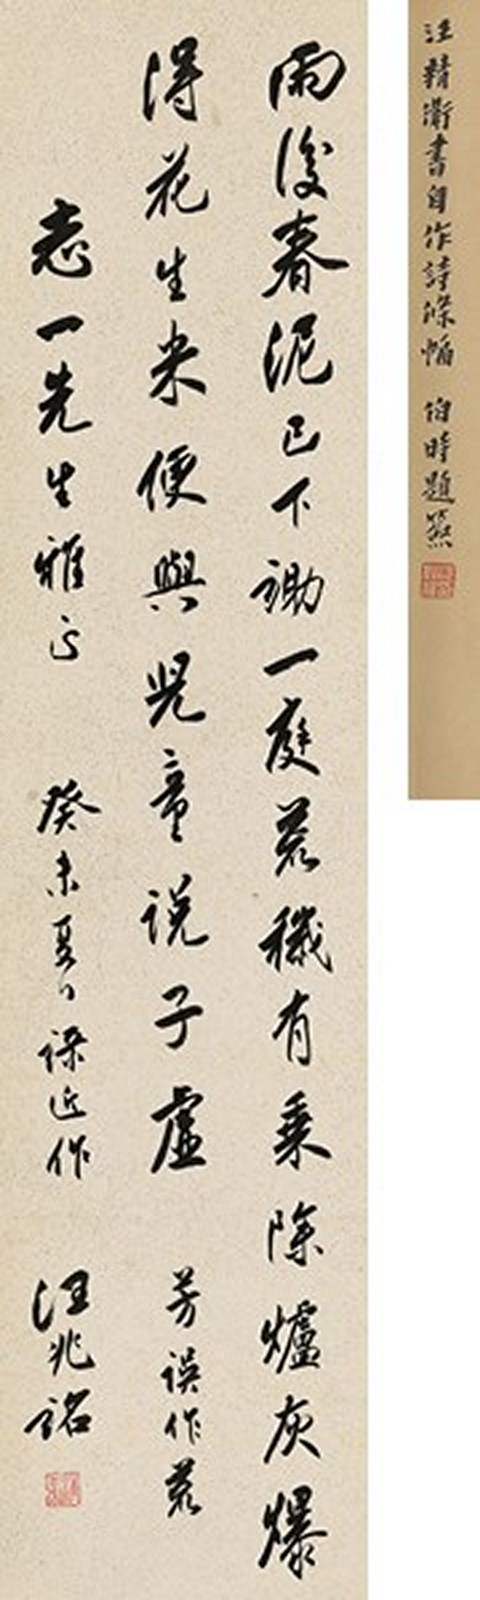 汪精衛書自作詩條幅 伯時題籤
雨後春泥已下鋤一庭荒穢有乘除爐灰爆
得花生米便與兒童說子虛 芳誤作荒
志一先生雅正 癸未夏日 錄近作 汪兆銘